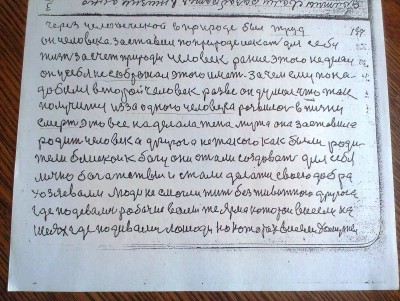 через человеческой в природе был труд
он человека заставил по природе искать для себя
жить за счет природы человек ранше этого не делал
он у себя не соображал этого иметь. зачем ему пона-
добился второй человек разве он думал что так
получится из за одного человека появилось в жизни
смерть это все наделала жена мужа она заставила
родит человека другого не такого как были роди-
тели близкой к богу они стали создавать для себя
лично богатство и стали делать своего добра
хозяевами люди не смогли жит без животного другога
где подевали рабочие волы же ярма которой висели на
шеях где подивали лошади на которых висели хомуты